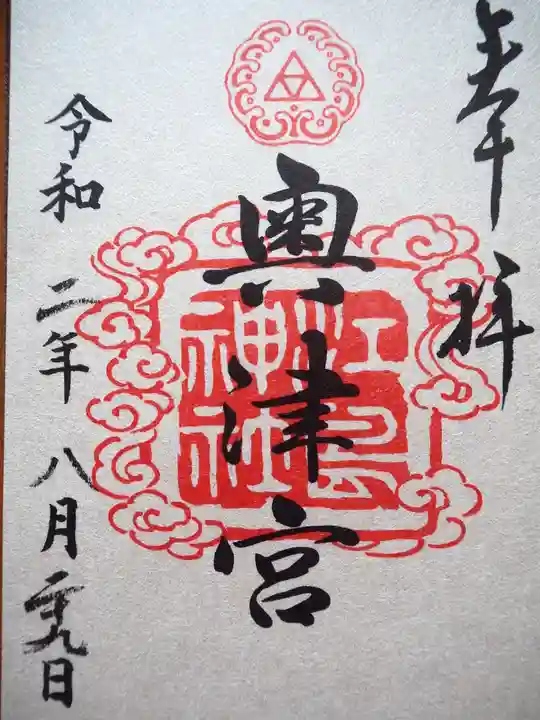 奉拝
奥津宮
江島
神社
令和二年八月二十九日